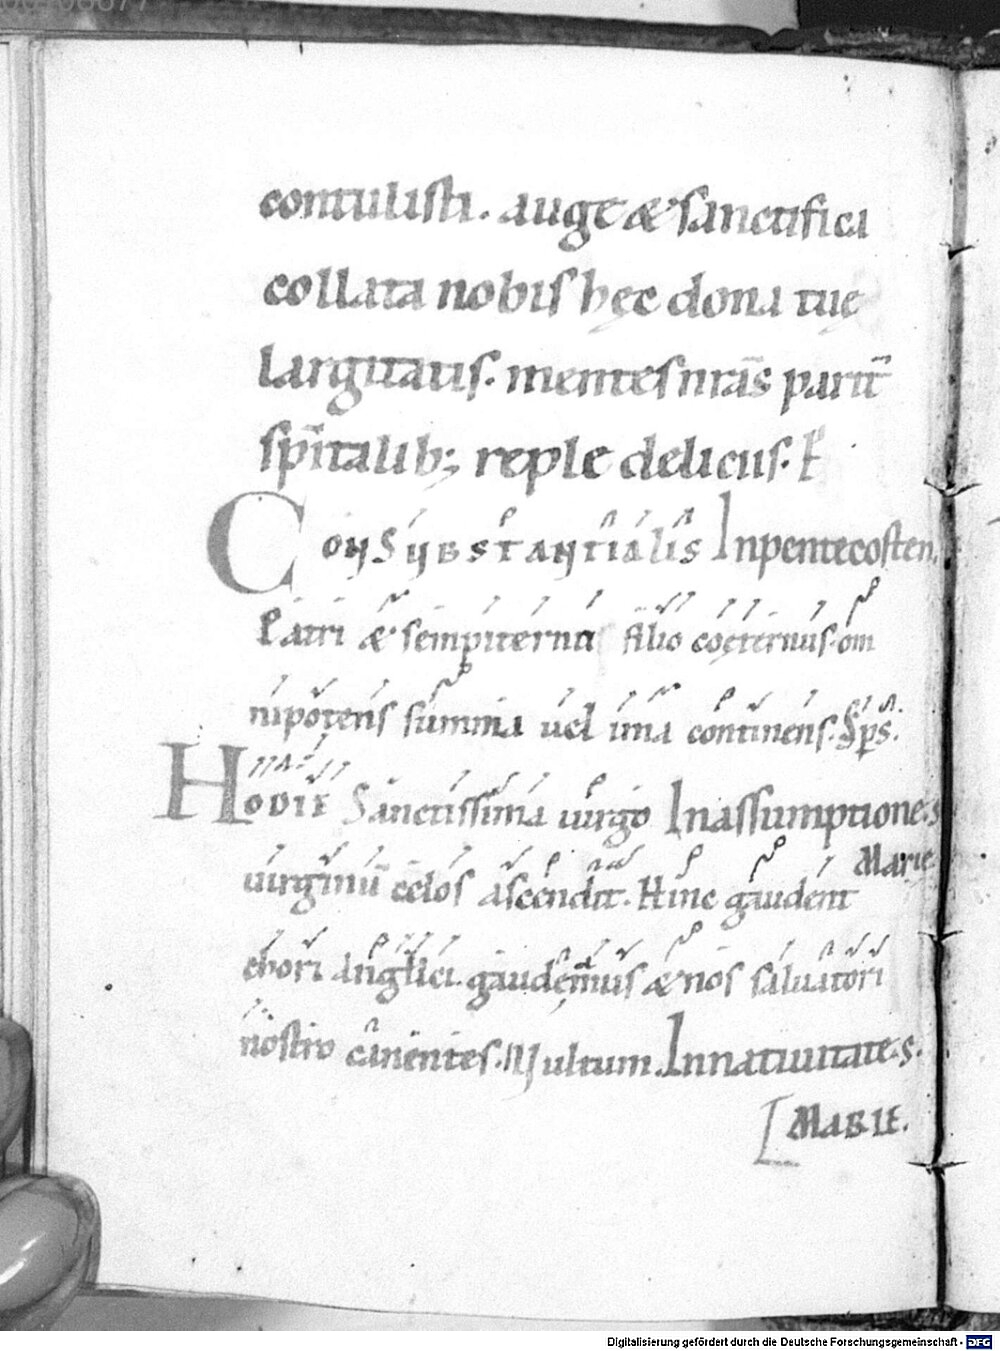 contulisti. auge & sanctifica
collata nobis hęc dona tuę
largitatis. mentes nrās parit̄
sp̄italib; reple deliciis. P
CONSUBSTANTIALIS Inpentecosten.
Patri & sempiternus filio coęternus. om
nipotens summa uel ima continens. Sp̄s.
HODIE Sanctissima uirgo Inassumptione. s.
Marie
uirginū celos ascendit. Hinc gaudent
chori anglici. gaudemus & nos saluatori
nostro canentes. Multum. Innatiuitate. s.
MARIE.
Digitalisierung gefördert durch die Deutsche Forschungsgemeinschaft - DFG